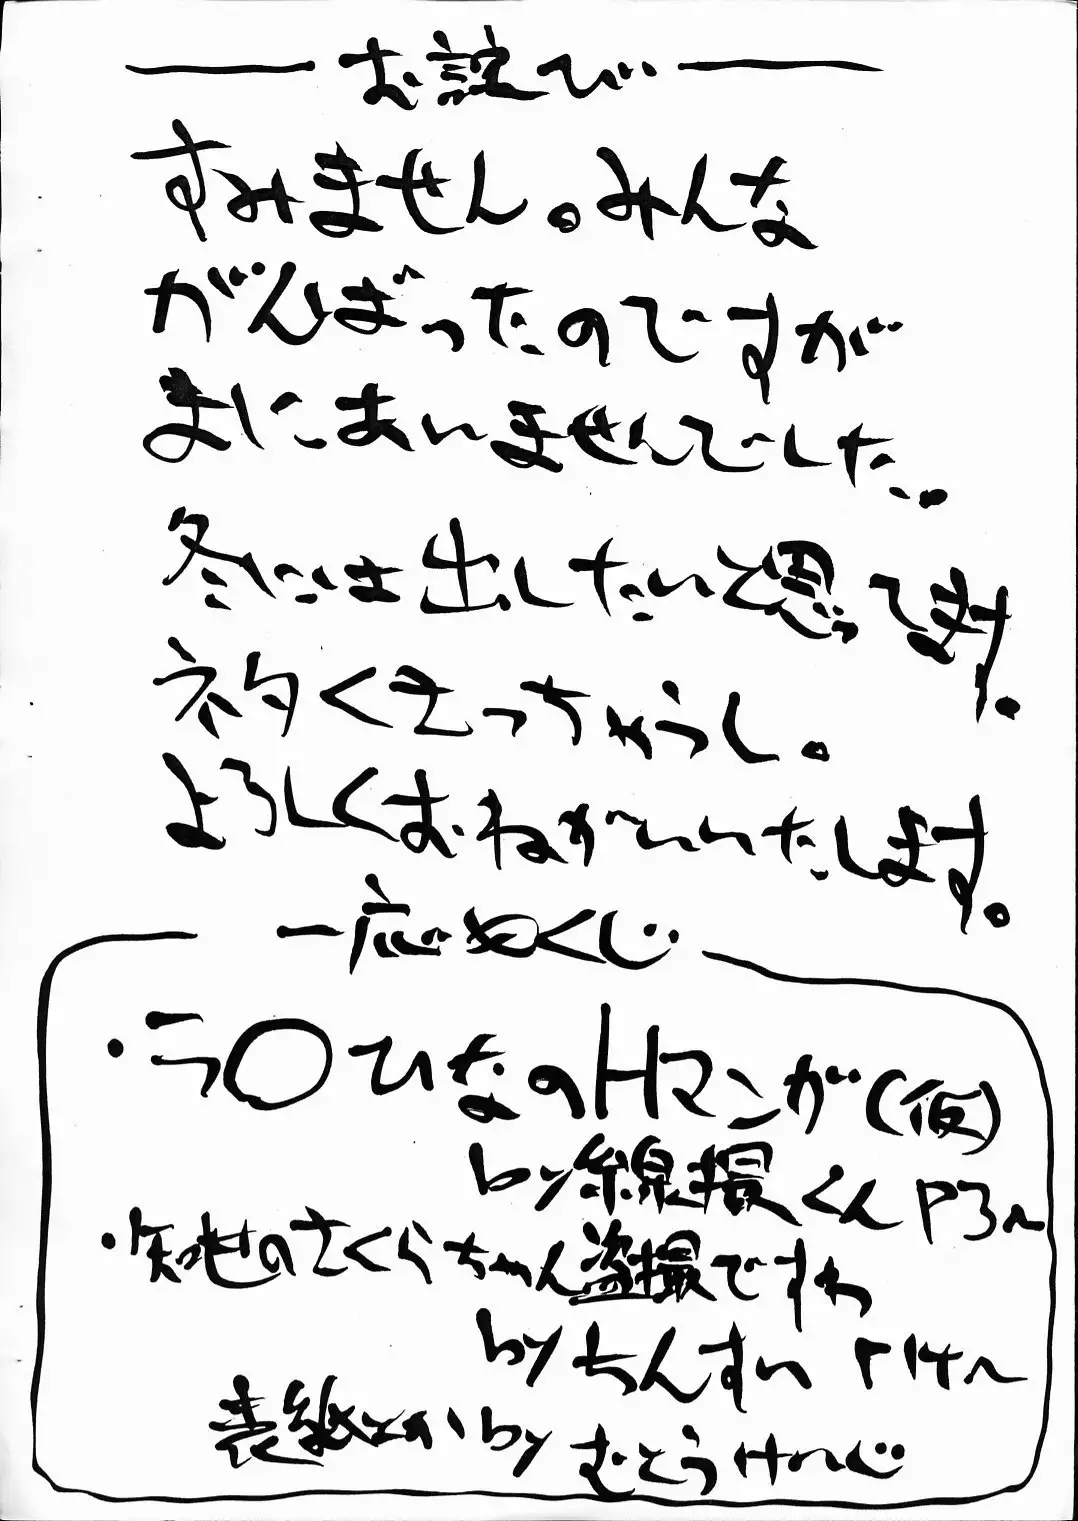 お詫び
すみません。みんな
がんばったのですが
まにあいませんでした。
冬には出したいと思ってます。
ネタくさっちゃうし。
よろしくおねがいいたします。
一応もくじ
・ラ〇ひなのHマンガ(仮)
by 線撮くん P3〜
・知世のさくらちゃん盗撮ですわ
by ちんすい P14〜
表紙とか by むとうけいじ